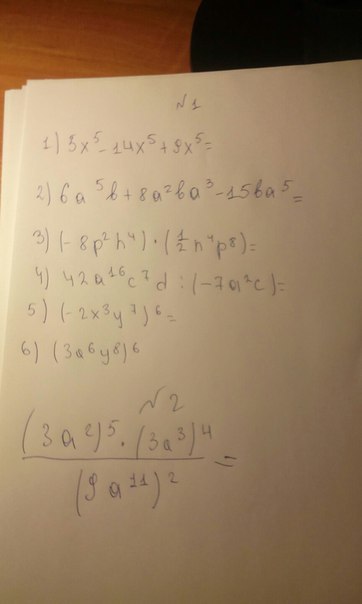 №1
1) 3x⁵ - 14x⁵ + 9x⁵ =
2) 6a⁵b + 8a²ba³ - 15ba⁵ =
3) (-8p²h⁴) · (1/2 h⁴p⁸) =
4) 42a¹⁶c⁷d : (-7a²c) =
5) (-2x³y⁷)⁶ =
6) (3a⁶y⁸)⁶
№2
(3a²)⁵ · (3a³)⁴
/ (9a¹¹)² =